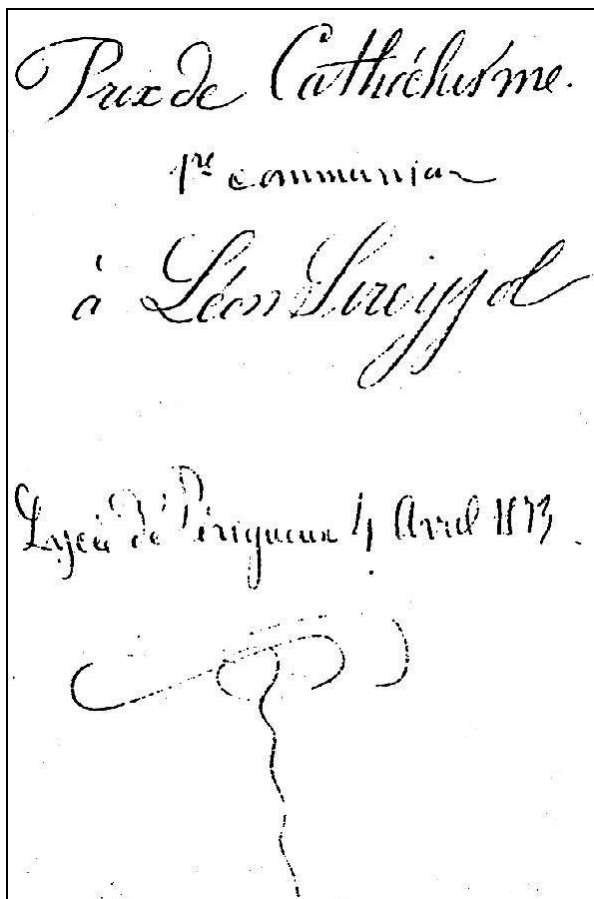 Prix de Cathéchisme.
1re communion
à Léon Sireyjol
Lycée de Périgueux 4 Avril 1873.